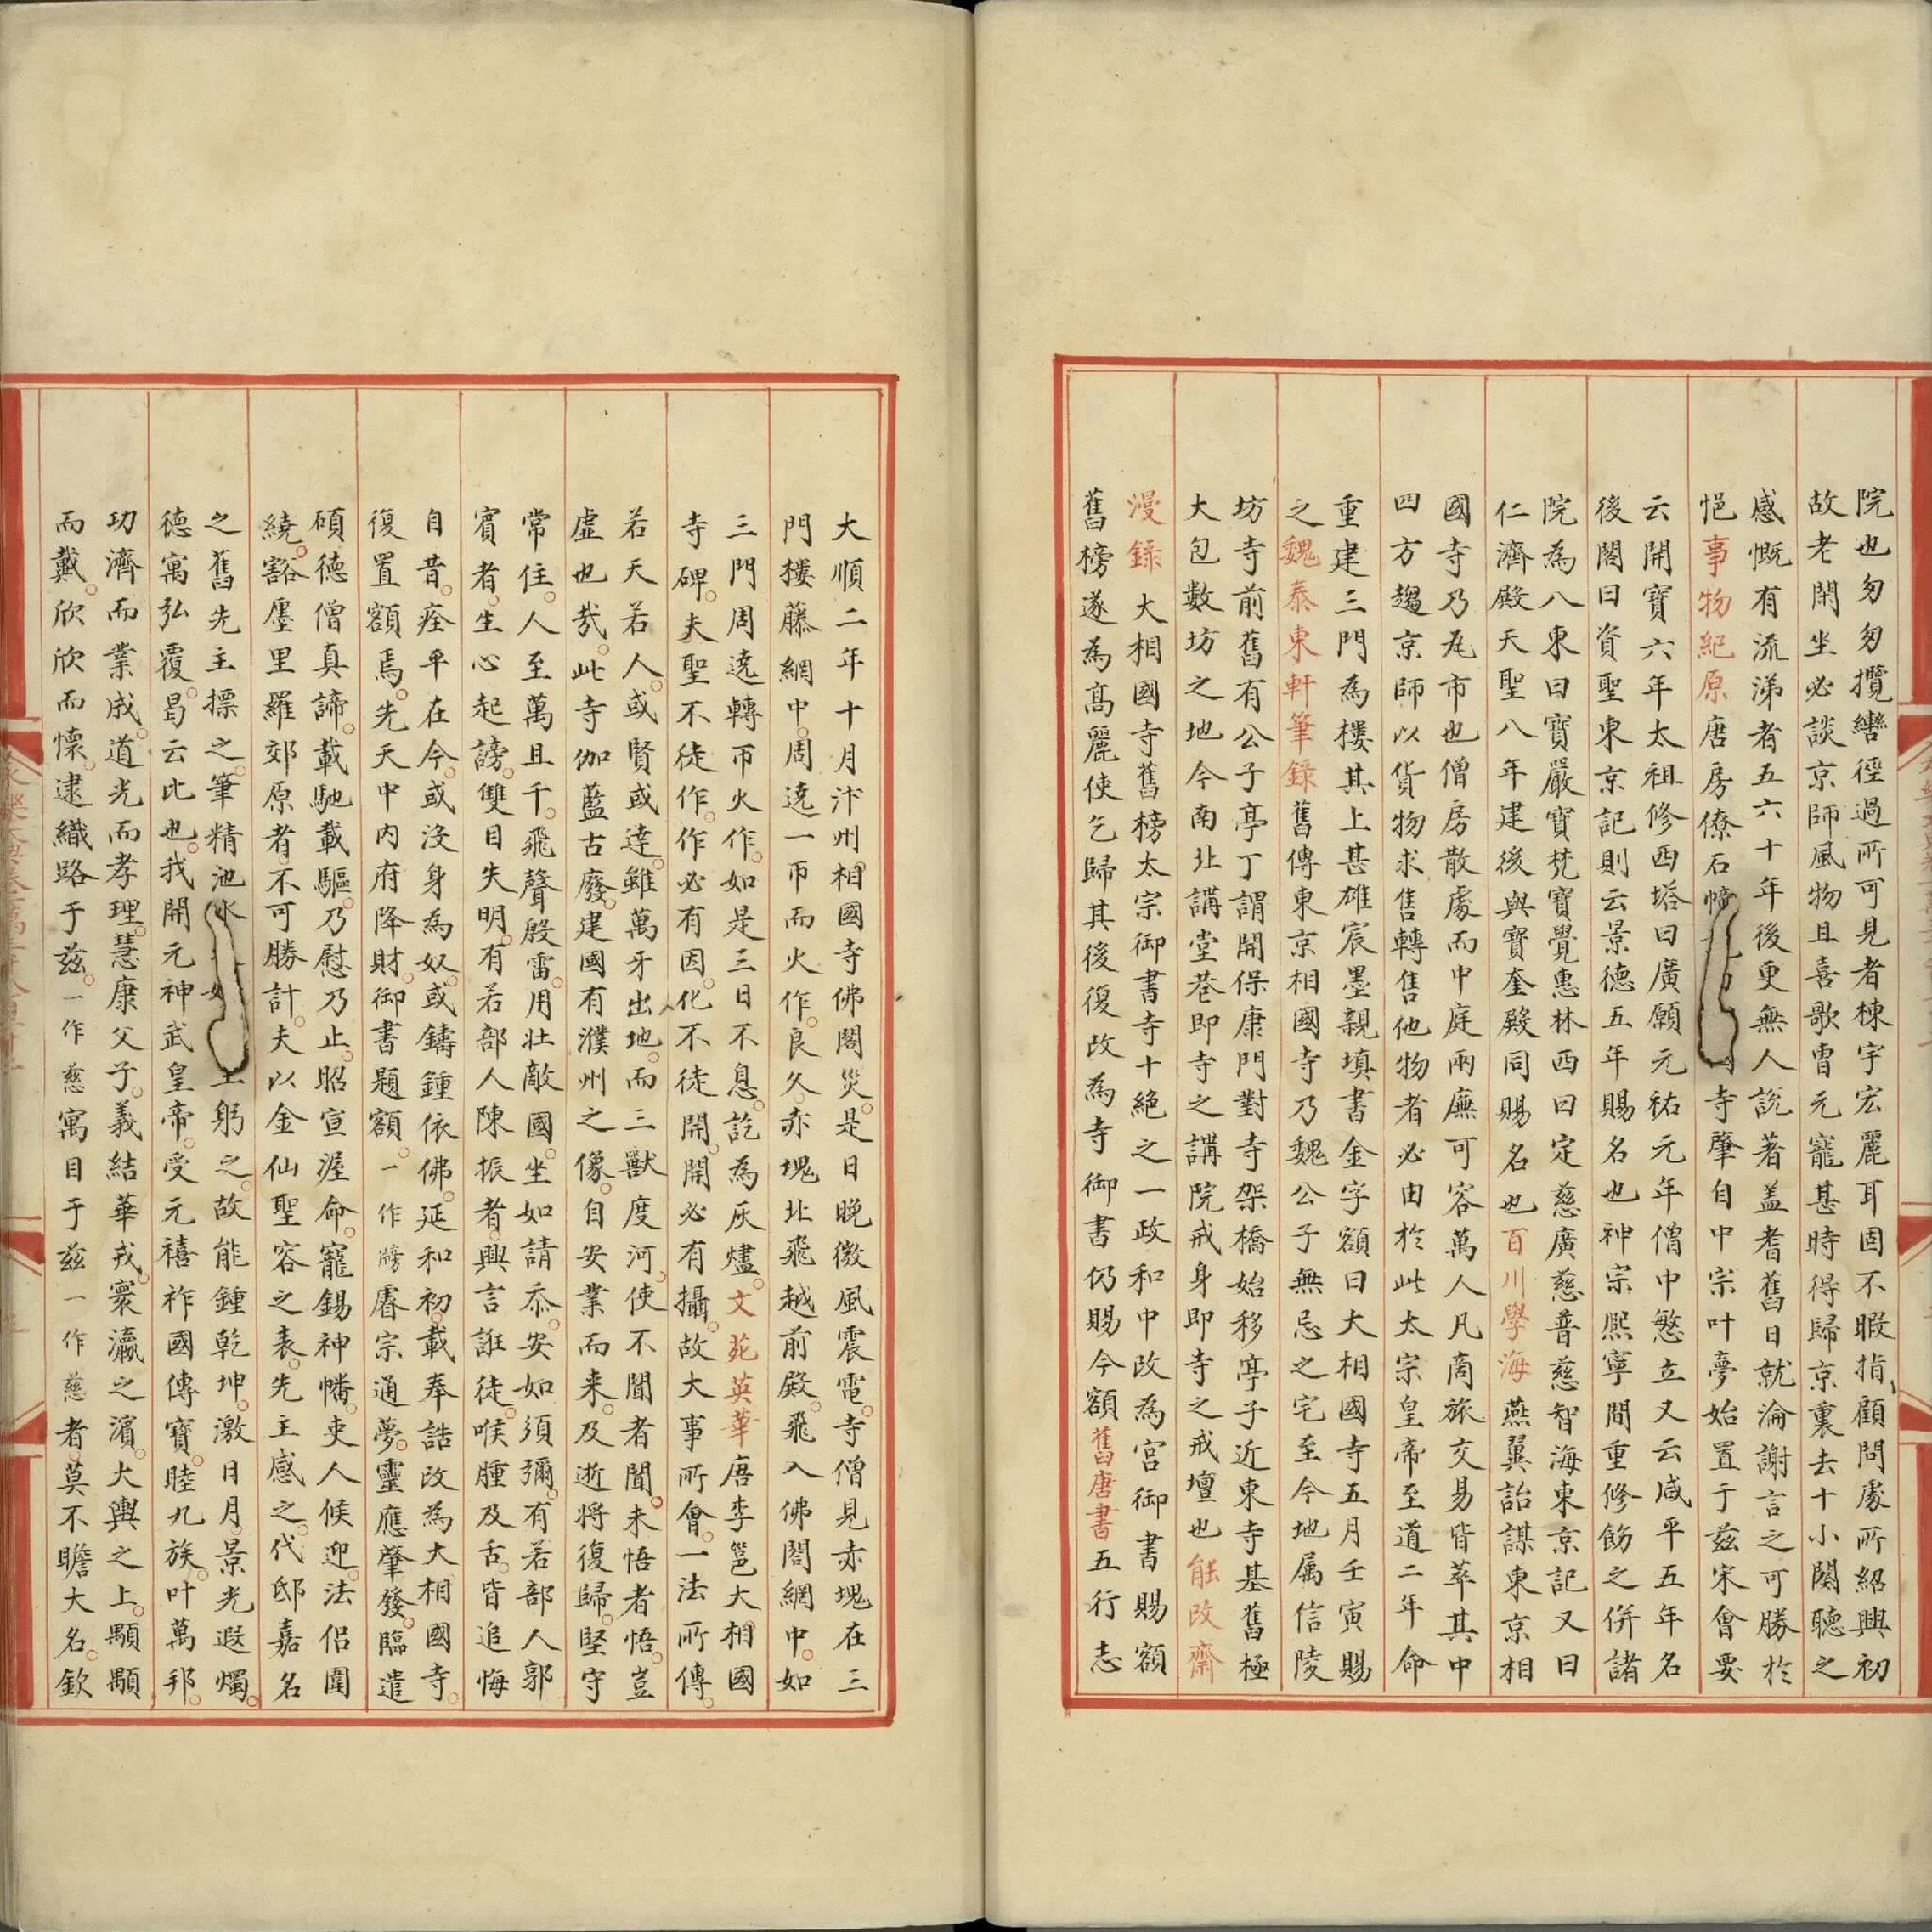 院也匆匆攬轡徑過所可見者棟宇宏麗耳固不暇指顧問處所紹興初
故老閑坐必談京師風物且喜歌曹元寵甚時得歸京裏去十小闋聽之
感慨有流涕者五六十年後更無人說著盖耆舊日就淪謝言之可勝於
悒事物紀原唐房僚石幢寺肇自中宗叶夢始置于兹宋會要
云開寶六年太祖修西塔曰廣願元祐元年僧中慜立又云咸平五年名
後閣曰資聖東京記則云景德五年賜名也神宗熙寧間重修餙之併諸
院為八東曰寶嚴寶梵寶覺惠林西曰定慈廣慈普慈智海東京記又曰
仁濟殿天聖八年建後與寶奎殿同賜名也百川學海燕翼詒謀東京相
國寺乃瓦市也僧房散處而中庭兩廡可容萬人凡商旅交易皆萃其中
四方趨京師以貨物求售轉售他物者必由於此太宗皇帝至道二年命
重建三門為樓其上甚雄宸墨親填書金字額曰大相國寺五月壬寅賜
之魏泰東軒筆録舊傳東京相國寺乃魏公子無忌之宅至今地属信陵
坊寺前舊有公子亭丁謂開保康門對寺架橋始移亭子近東寺基舊極
大包數坊之地今南北講堂巷即寺之講院戒身即寺之戒壇也能改齋
漫録大相國寺舊榜太宗御書寺十絶之一政和中改為宫御書賜額
舊榜遂為髙麗使乞歸其後復改為寺御書仍賜今額舊唐書五行志
大順二年十月汴州相國寺佛閣災是日晚微風震電寺僧見赤塊在三
門樓藤網中周遶一帀而火作良久赤塊北飛越前殿飛入佛閣網中如
三門周遶轉帀火作如是三日不息訖為灰燼文苑英華唐李邕大相國
寺碑夫聖不徒作作必有因化不徒開開必有攝故大事所會一法所傳
若天若人或賢或達雖萬牙出地而三獸度河使不聞者聞未悟者悟豈
虛也㢤此寺伽藍古廢建國有濮州之像自安業而来及逝將復歸堅守
常住人至萬且千飛聲殷雷用壯敵國坐如請忝安如須彌有若部人郭
賓者生心起謗雙目失明有若部人陳振者興言誑徒喉腫及舌皆追悔
自昔痊平在今或沒身為奴或鑄鍾依佛延和初載奉誥改為大相國寺
復置額焉先天中内府降財御書題額一作牓睿宗通夢靈應肇發臨遣
碩德僧真諦載馳載驅乃慰乃止昭宣渥命寵錫神幡吏人候迎法侣圍
繞豁㕓里羅郊原者不可勝計夫以金仙聖容之表先主感之代邸嘉名
之舊先主摽之筆精池水躬之故能鍾乾坤激日月景光遐燭
徳寓弘覆曷云比也我開元神武皇帝受元禧祚國傳寶睦九族叶萬邦
功濟而業成道光而孝理慧康父子義結華戎寰瀛之濱大輿之上顒顒
而戴欣欣而懷逮織路于兹一作慈寓目于兹一作慈者莫不瞻大名欽